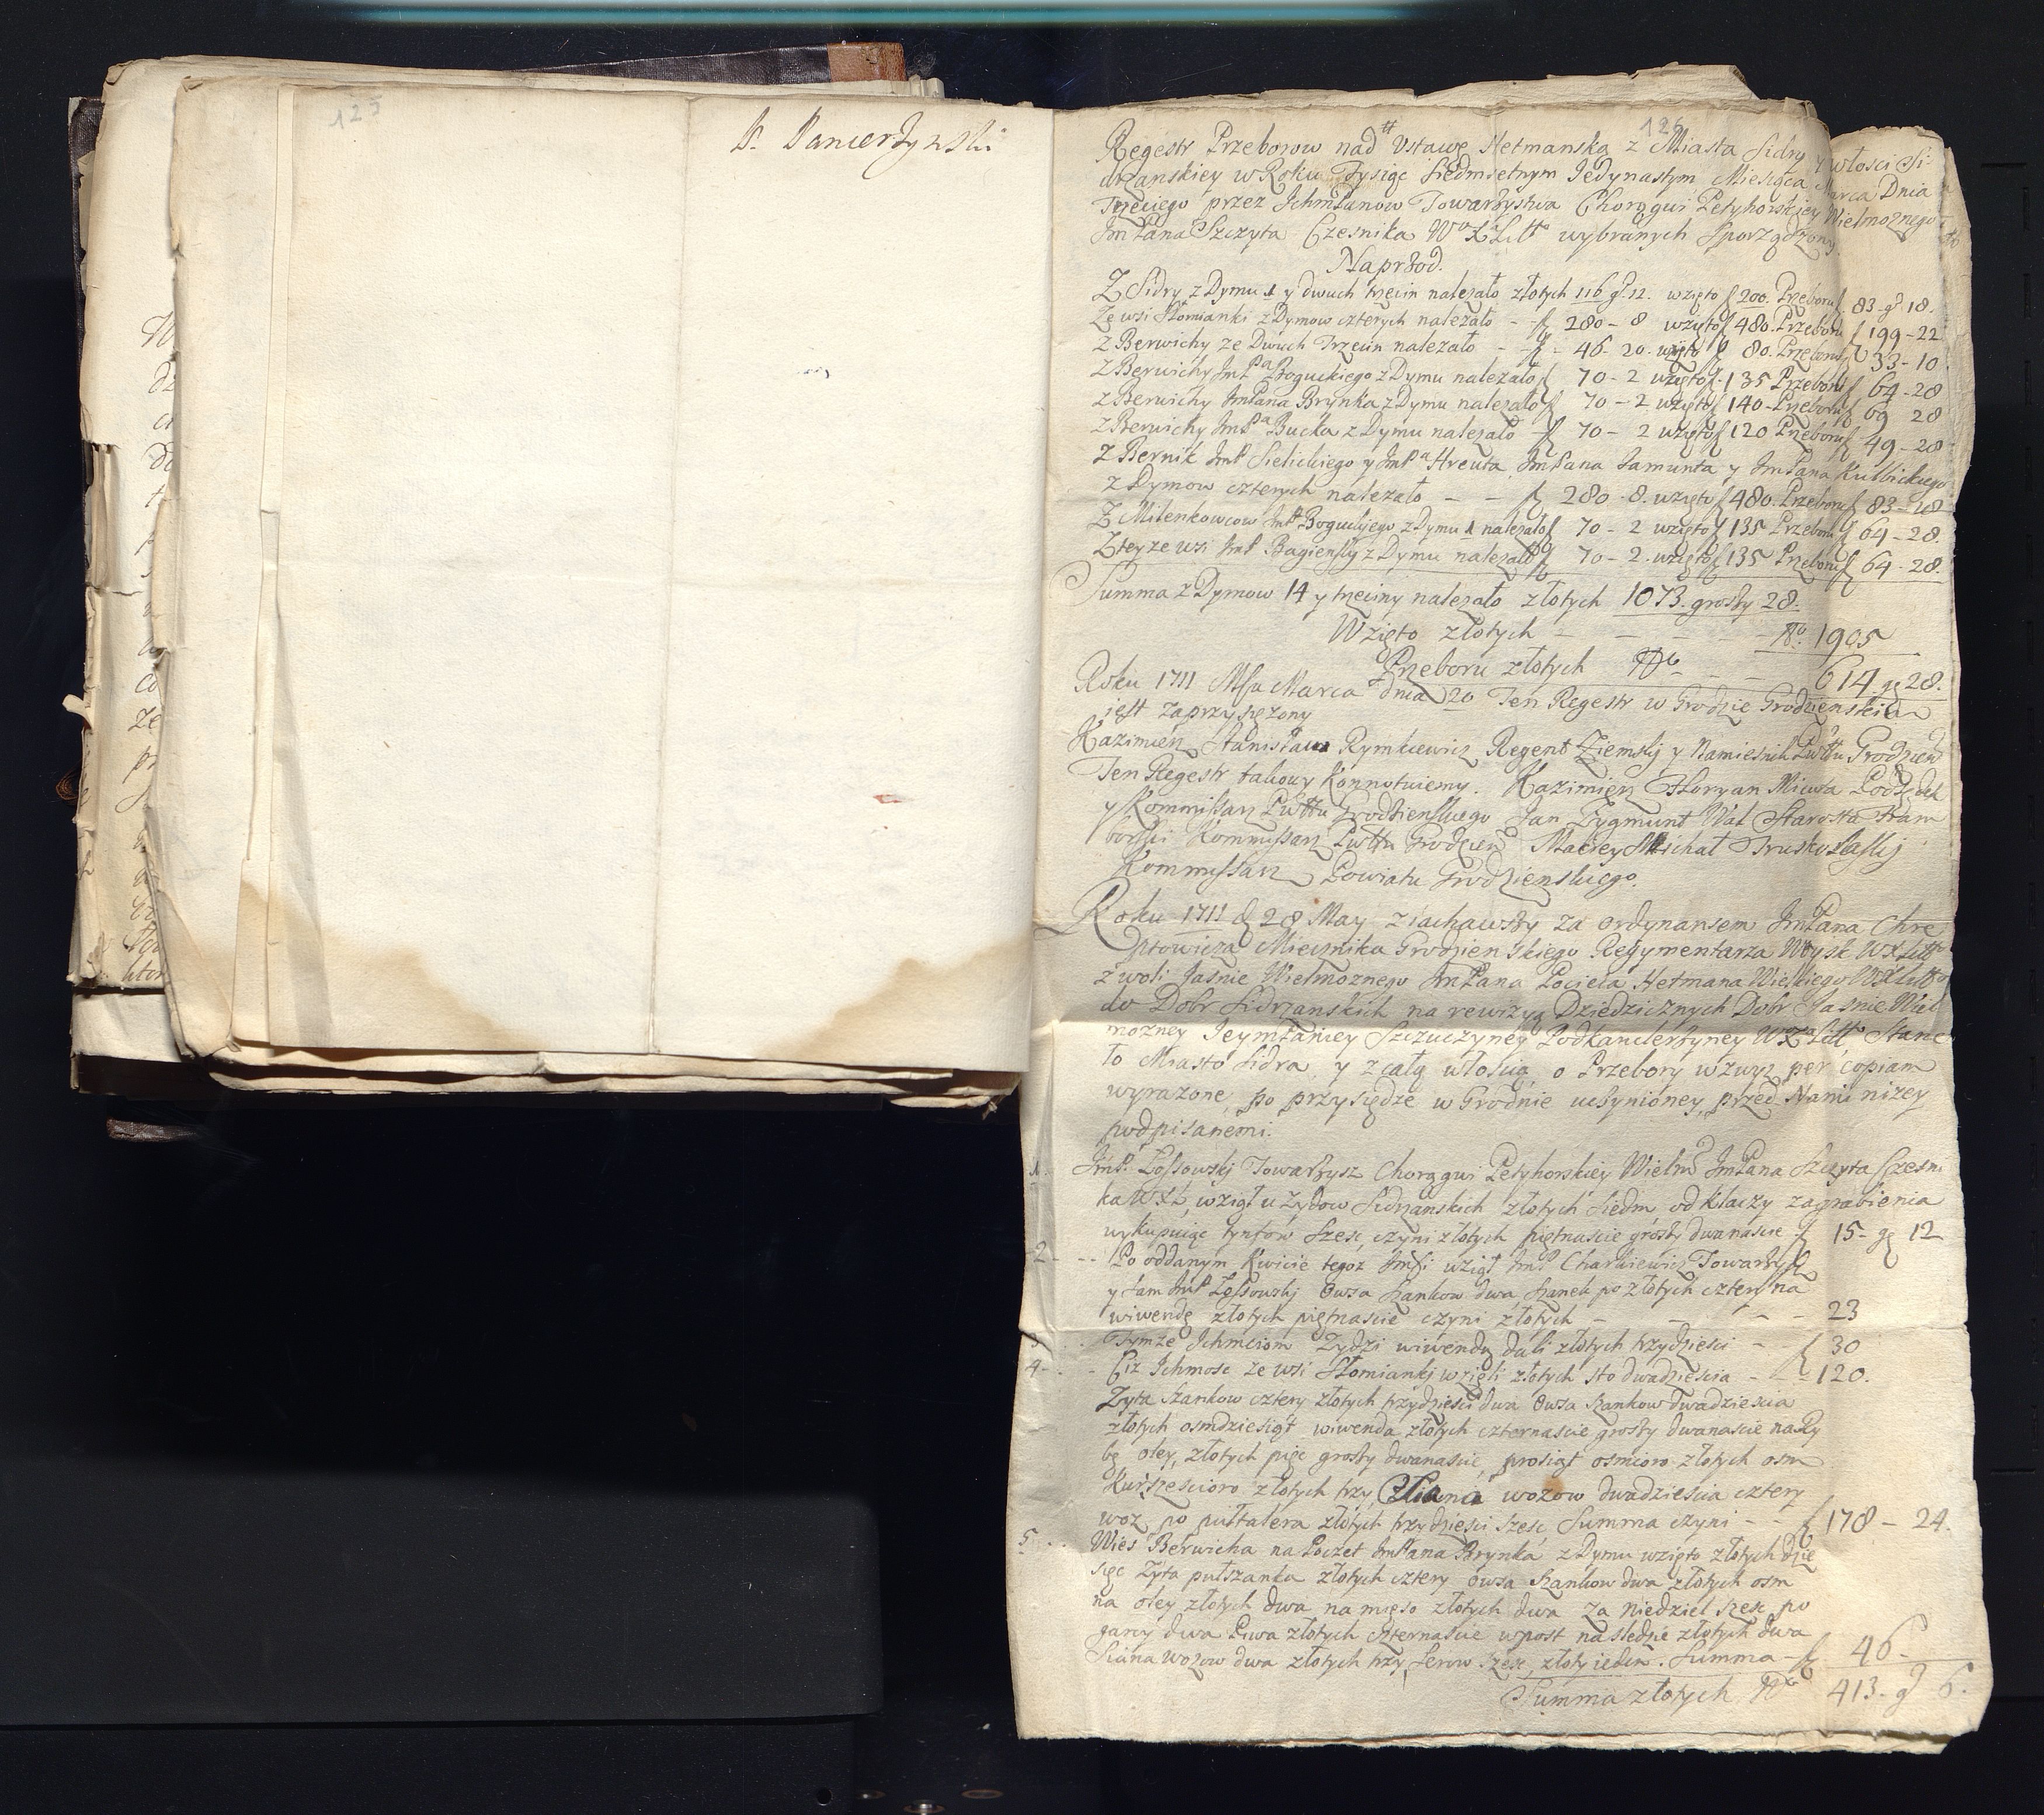 125
P. Pancerzynski
126
Regestr Przeborow nad Ustawę Hetmanską z Miasta Sidry y włosci Si-
drzanskiey w Roku Tysiąc Siedmsetnym Jedynastym Miesiąca Marca Dnia
Trzeciego przez Ichmśanow Towarzystwa Chorągwi Petyhorskiey Wielmoznego
Jm Pana Szczyta Czesnika W° X° Litt° wybranych Sporządzony
Naprzod.
Z Sidry z Dymu 1 y dwuch trzecin nalezało złotych 116 g. 12. wzięto f 200. Przeboru f 83. g. 18.
Ze wsi Słomianki z Dymow czterych nalezało - f 280 - 8 wzięto f 480. Przeboru f 199 - 22
z Berwichy ze Dwuch Trzecin nalezało - f - 46 - 20. wzięto f 80. Przeboru f 33 - 10
z Berwichy Jm P^a Boguckiego z Dymu nalezało f 70 - 2 wzięto f 135 Przeboru f 64 - 28
z Berwichy Jm Pana Brynka z Dymu nalezało f 70 - 2 wzięto f 140 - Przeboru f 69 28
z Berwichy Jm P^a Bucka z Dymu nalezało - f 70 - 2 wzięto f 120 Przeboru f 49 - 28
Z Bernik Jm P Sielickiego y Jm P^a Hreuta Jm Pana Jamunta y Jm Pana Kulbickiego
z Dymow czterych nalezało - - f 280 - 8. wzięto f 480. Przeboru f 83 - 18
Z Milenkowcow Jm P Boguckiego z Dymu 1 nalezało f 70 - 2 wzięto f 135 Przeboru f 64 - 28.
Z teyze wsi Jm P Bagienski z Dymu nalezało f 70 - 2. wzięto f 135 Przeboru f 64 - 28.
Summa z Dymow 14 y trzeciny nalezało złotych 1073. groszy 28.
Wzięto złotych - - - - - N° 1905
Przeboru złotych N° - - - 614. g 28.
Roku 1711 Msca Marca dnia 20 Ten Regestr w Grodzie Grodzienskim
jest zaprzysięzony
Kazimierz Stanisław Rymkiewicz Regent Ziemskj y Namiesnik Pwttu Grodzien
Ten Regestr takowy Konnotuiemy. Kazimierz Floryan Podsędek
y Kommissarz Pwttu Grodzienskiego Jan Zygmunt Wał Starosta Fram
borski Kommissarz Pwttu Grodzien Maciey Michał Truskolaskj
Kommissarz Powiatu Grodzienskiego.
Roku 1711 d 28 May ziachawszy za ordynansem Jm Pana Chre
ptowicza Miecznika Grodzienskiego Regymentarza Woysk W X Litt°
z woli Jasnie Wielmoznego Jm Pana Pocieia Hetmana Wielkiego W X Litt°
do Dobr Sidrzanskich na rewizyą Dziedzicznych Dobr Jasnie Wiel
mozney Jeymśaniey Szczuczyney Podkanclerzyney W° X° Litt° Stane
ło Miasto Sidra, y z całą włością o Przebory wzwyz per copiam
wyrazone, po przysiędze w Grodnie uczynioney, przed Nami nizey
podpisanemi.
1. Jm P. Łossowskj Towarzysz Chorągwi Petyhorskiey Wielm Jm Pana Szczyta Czesni
ka W X Ł, wziął u Zydow Sidrzanskich złotych Siedm od klaczy zagrabienia
wykupuiąc tynfów Szesc, czyni złotych piętnascie groszy dwanascie f 15 - g 12
2 - - - Po oddanym Kwicie tegoz wziął Jm P Charkiewicz Towarzysz
y sam Jm P Łossowskj Owsa szankow dwa szanek po złotych cztery na
wiwendę złotych piętnascie czyni złotych - - - - 23
3 - - - Tymze Ichmciom Zydzi wiwendą dali złotych trzydziesci - - f 30
4 - - - Ciz Ichmosc ze wsi Słomiankj wzięli złotych sto dwadziescia - - f 120.
Zyta szankow cztery złotych trzydziesci dwa Owsa szankow dwadziescia
złotych osmdziesiąt, wiwenda złotych czternascie groszy dwanascie na Ry
bę oley, złotych pięc groszy dwanascie, prosiąt osmioro złotych osm
Kur szescioro złotych trzy Siana wozow dwadziescia cztery
woz po pułtalera złotych trzydziesci szesc Summa czyni - - f 178 - 24.
5 . . . Wies Berwicha na Poczet Jm Pana Brynka z Dymu wzięto złotych dzie
sięc Zyta pułszanka złotych cztery Owsa szankow dwa złotych osm
na oley złotych dwa na mięso złotych dwa za Niedziel szesc po
garcy dwa Piwa złotych czternascie w post na sledzie złotych dwa
Siana wozow dwa złotych trzy, serow szesc, złoty ieden. Summa - f 46 -
Summa złotych N° 413. g 6.